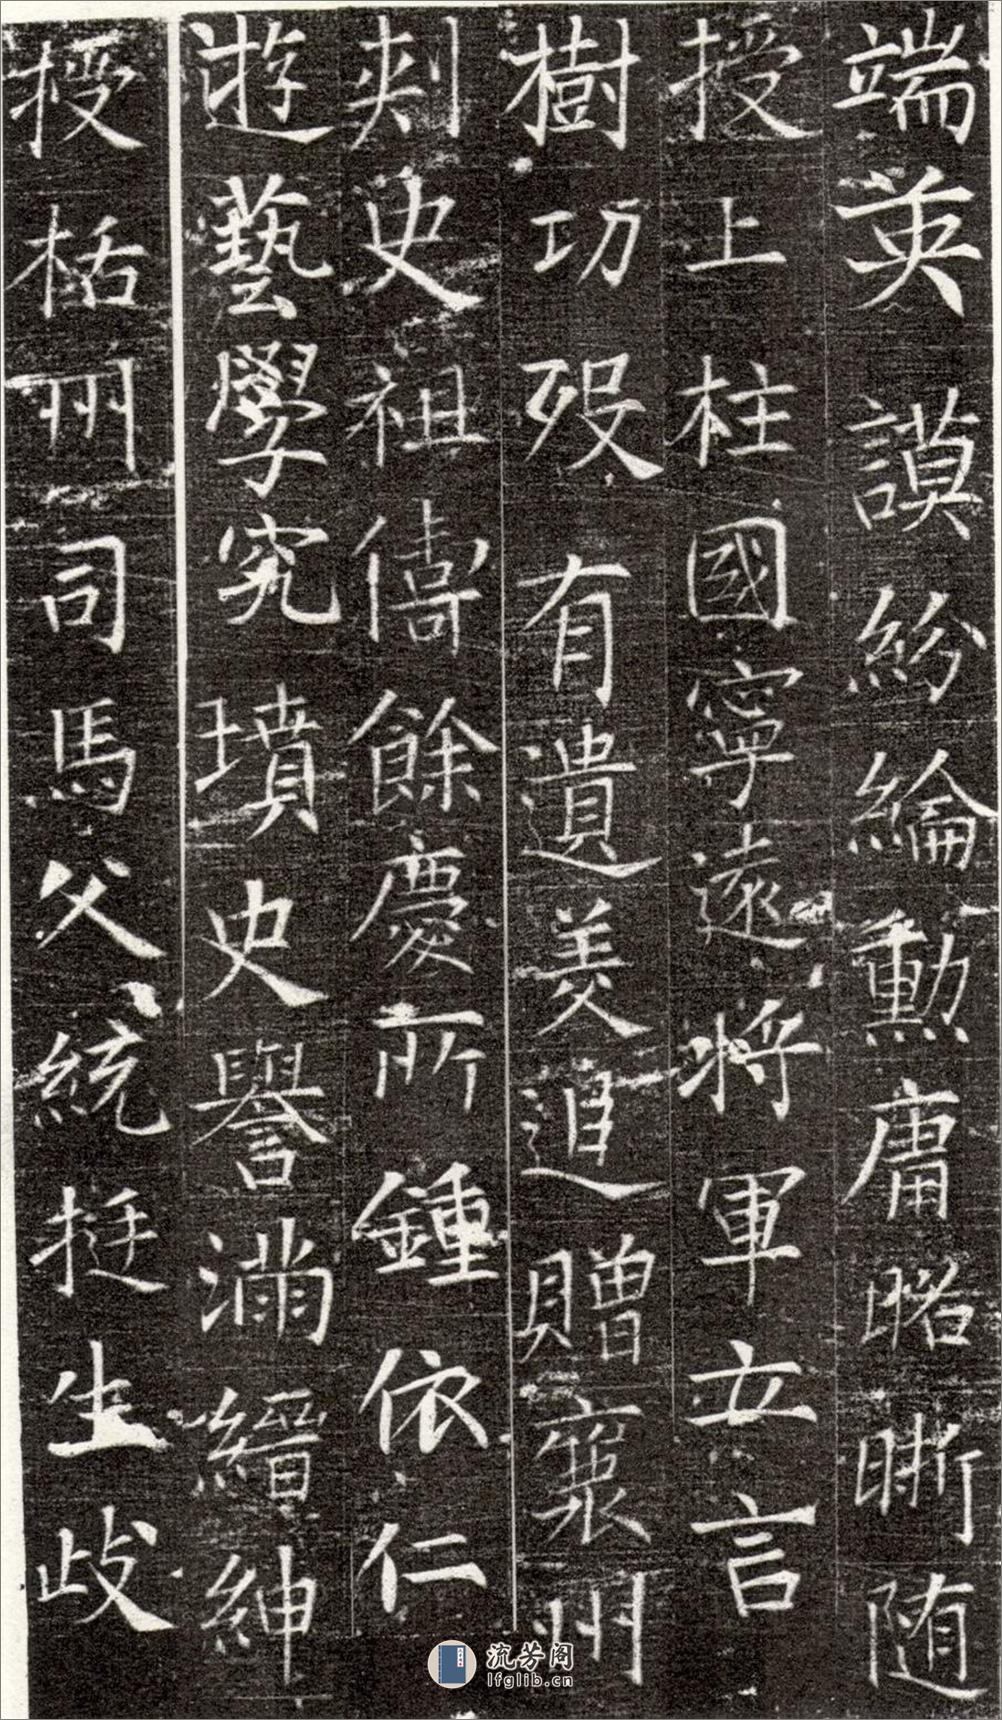 端英謨紛綸勳庸昭晣随
授上柱國寧遠將軍立言
樹功歿有遺美追贈襄州
刾史祖儔餘慶所鍾依仁
遊藝學究墳史譽滿縉紳
授栝州司馬父統挺生歧
流芳阁
lfglib.cn